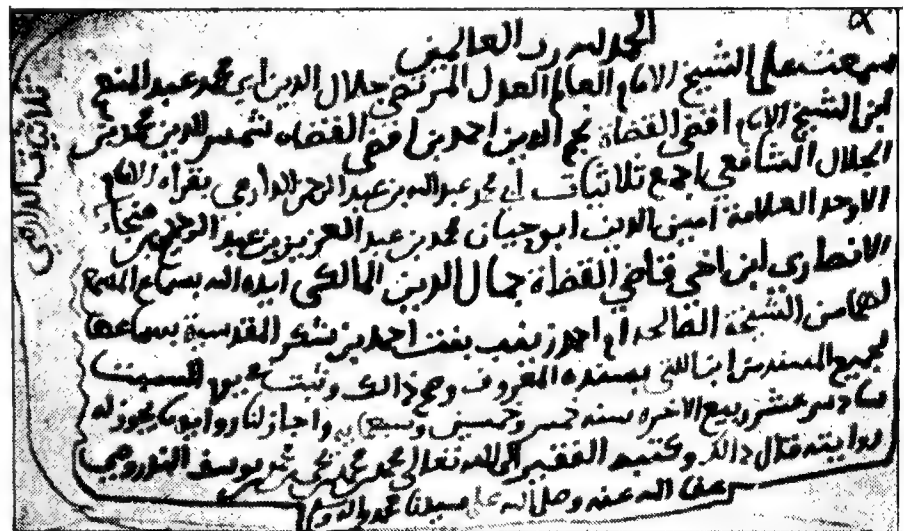 الحمد لله رب العالمين
سمعت على الشيخ الامام العالم العدل المرتضى جلال الدين ابي محمد عبد المنعم
ابن الشيخ الامام اقضى القضاة نجم الدين احمد بن اقضى القضاة شمس الدين محمد بن
الجلال الشافعي اجمع ثلاثيات ابي محمد عبد الله بن عبد الرحمن الدارمي بقراة الامام
الاوحد العلامة امين الدين ابو حيان محمد بن عبد العزيز بن عبد الرحيم بن
الانصاري ابن اخي قاضي القضاة جمال الدين المالكي ايده الله بسماع المسمع
لها من الشيخة الصالحة ام احمد زينب بنت احمد بن شكر المقدسية بسماعها
لجميع المسند من ابن اللتي بسنده المعروف وصح ذالك وثبت يوم السبت
سادس عشر ربيع الاخر سنة خمس وخمسين وسبعمايه واجاز لنا رواية ما يجوز له
روايته قال ذالك وكتبه الفقير الى الله تعالى محمد بن محمد بن يحيى بن يوسف
عفا الله عنه وصلى الله على سيدنا محمد واله وسلم
ثلاثيات الدارمي